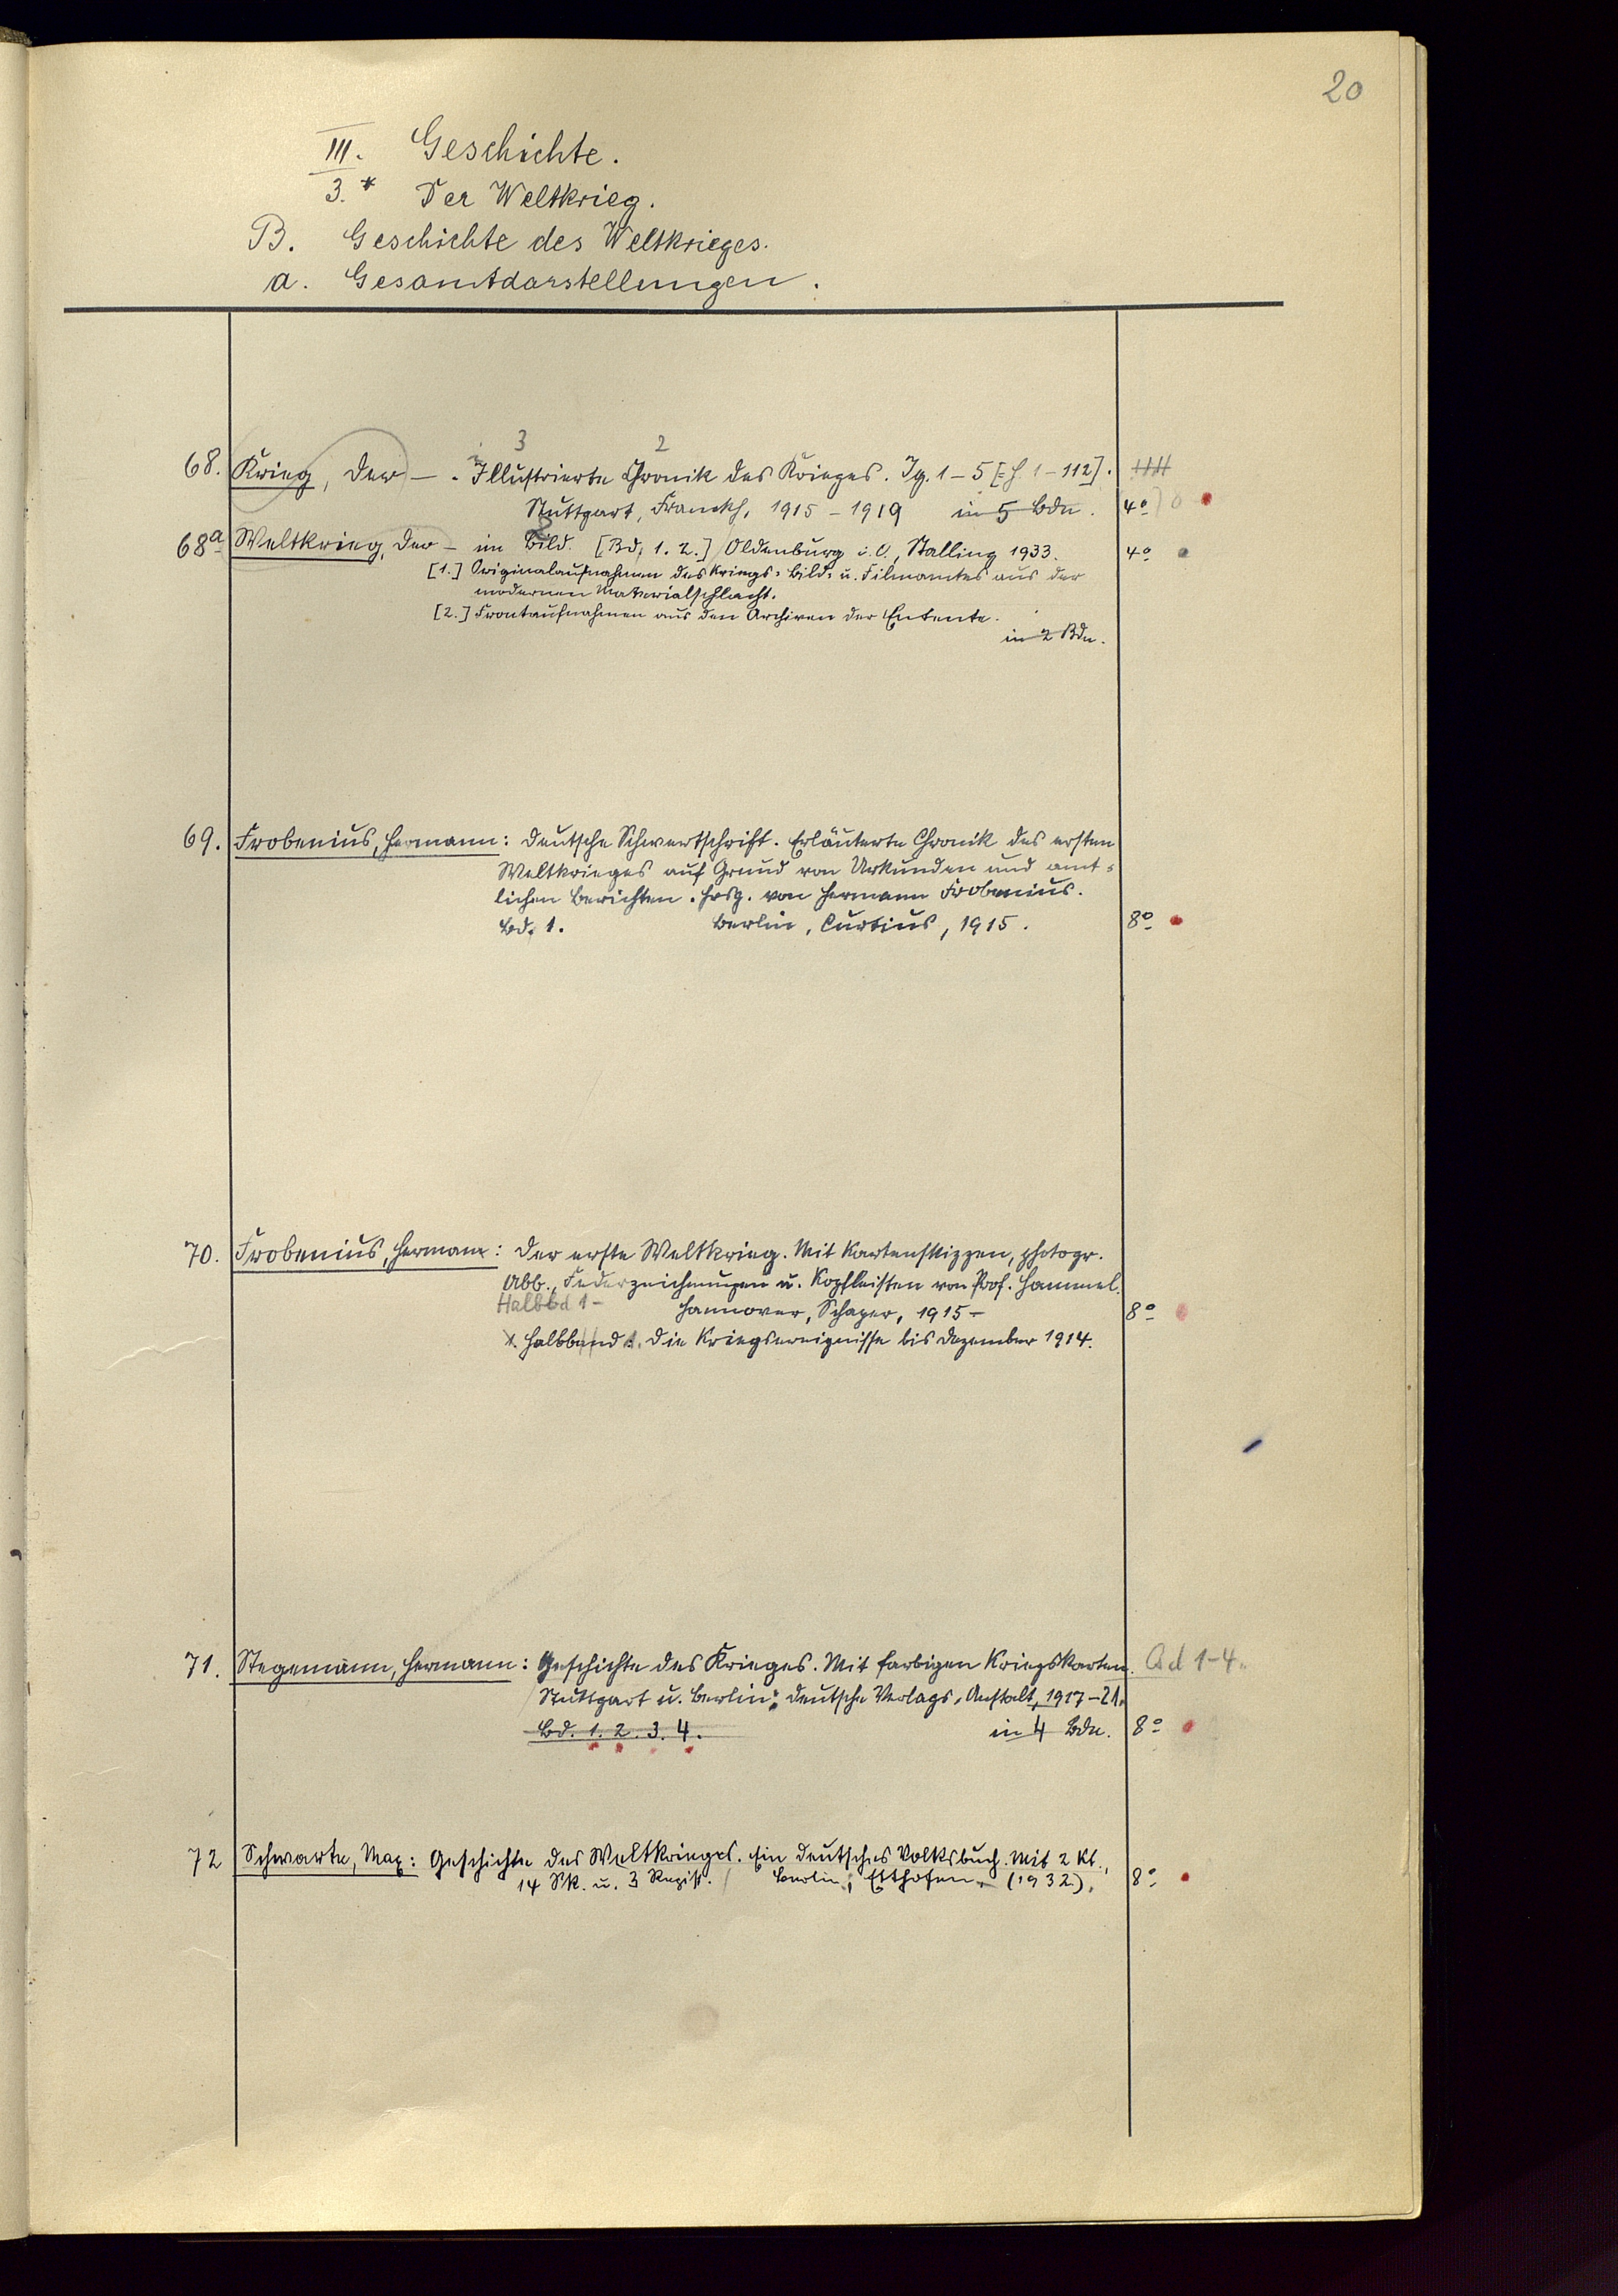 20
III. Geschichte.
3.* Der Weltkrieg.
B. Geschichte des Weltkrieges.
a. Gesamtdarstellungen.
3 2
68. Krieg, Der —. Illustrierte Chronik des Krieges. Jg. 1–5 [= H. 1–112].
Stuttgart, Franckh, 1915–1919 in 5 Bdn. 4°
68a Weltkrieg, Der – im Bild. [Bd. 1. 2.] Oldenburg i.O., Stalling 1933. 4°
[1.] Originalaufnahmen des Kriegs- Bild- u. Filmamtes aus der
modernen Materialschlacht.
[2.] Frontaufnahmen aus den Archiven der Entente.
in 2 Bdn.
69. Frobenius, Hermann: Deutsche Schwertschrift. Erläuterte Chronik des ersten
Weltkrieges auf Grund von Urkunden und amt-
lichen Berichten. Hrsg. von Hermann Frobenius.
Bd. 1. Berlin, Curtius, 1915. 8°
70. Frobenius, Hermann: Der erste Weltkrieg. Mit Kartenskizzen, photogr.
Abb., Federzeichnungen u. Kopfleisten von Prof. Hammel.
Halbbd 1– Hannover, Schaper, 1915– 8°
1. Halbband: Die Kriegsereignisse bis Dezember 1914.
71. Stegemann, Hermann: Geschichte des Krieges. Mit farbigen Kriegskarten. Bd 1–4.
Stuttgart u. Berlin: Deutsche Verlags-Anstalt, 1917–21.
Bd. 1. 2. 3. 4. in 4 Bdn. 8°
72 Schwarte, Max: Geschichte des Weltkrieges. Ein deutsches Volksbuch. Mit 2 Kt.,
14 Sk. u. 3 Regist. Berlin, Etthofen, (1932). 8°